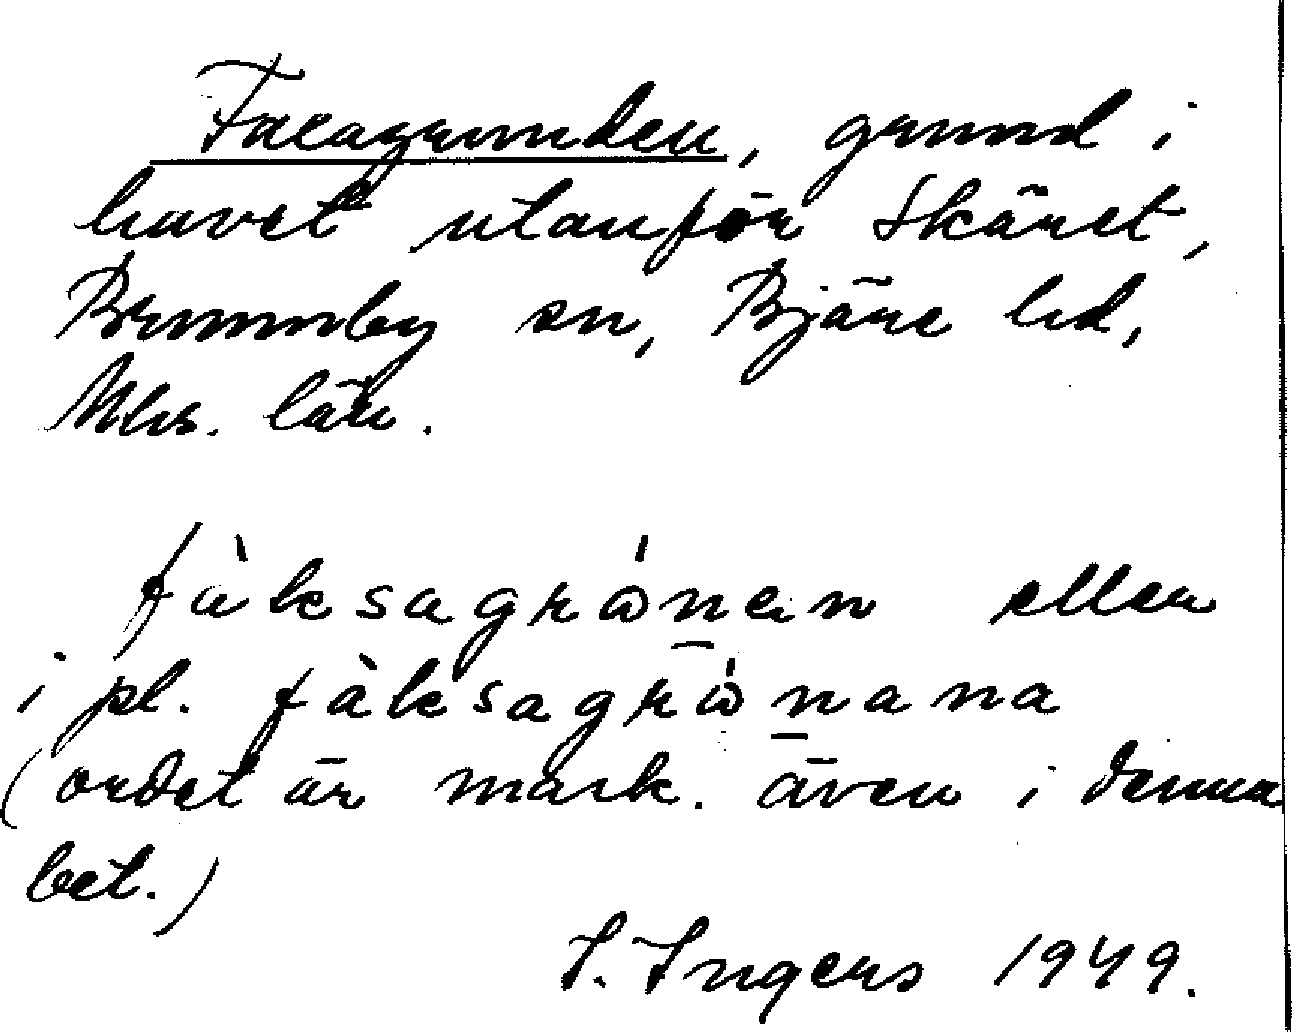 Falagrunden, grund i
havet utanför Skäret,
Brunnby sn, Bjäre hd,
Mhs. län.
fàksagrónen eller
i pl. fàksagrónana
(ordet är mask. även i denna
bet.)
I. Ingers 1949.